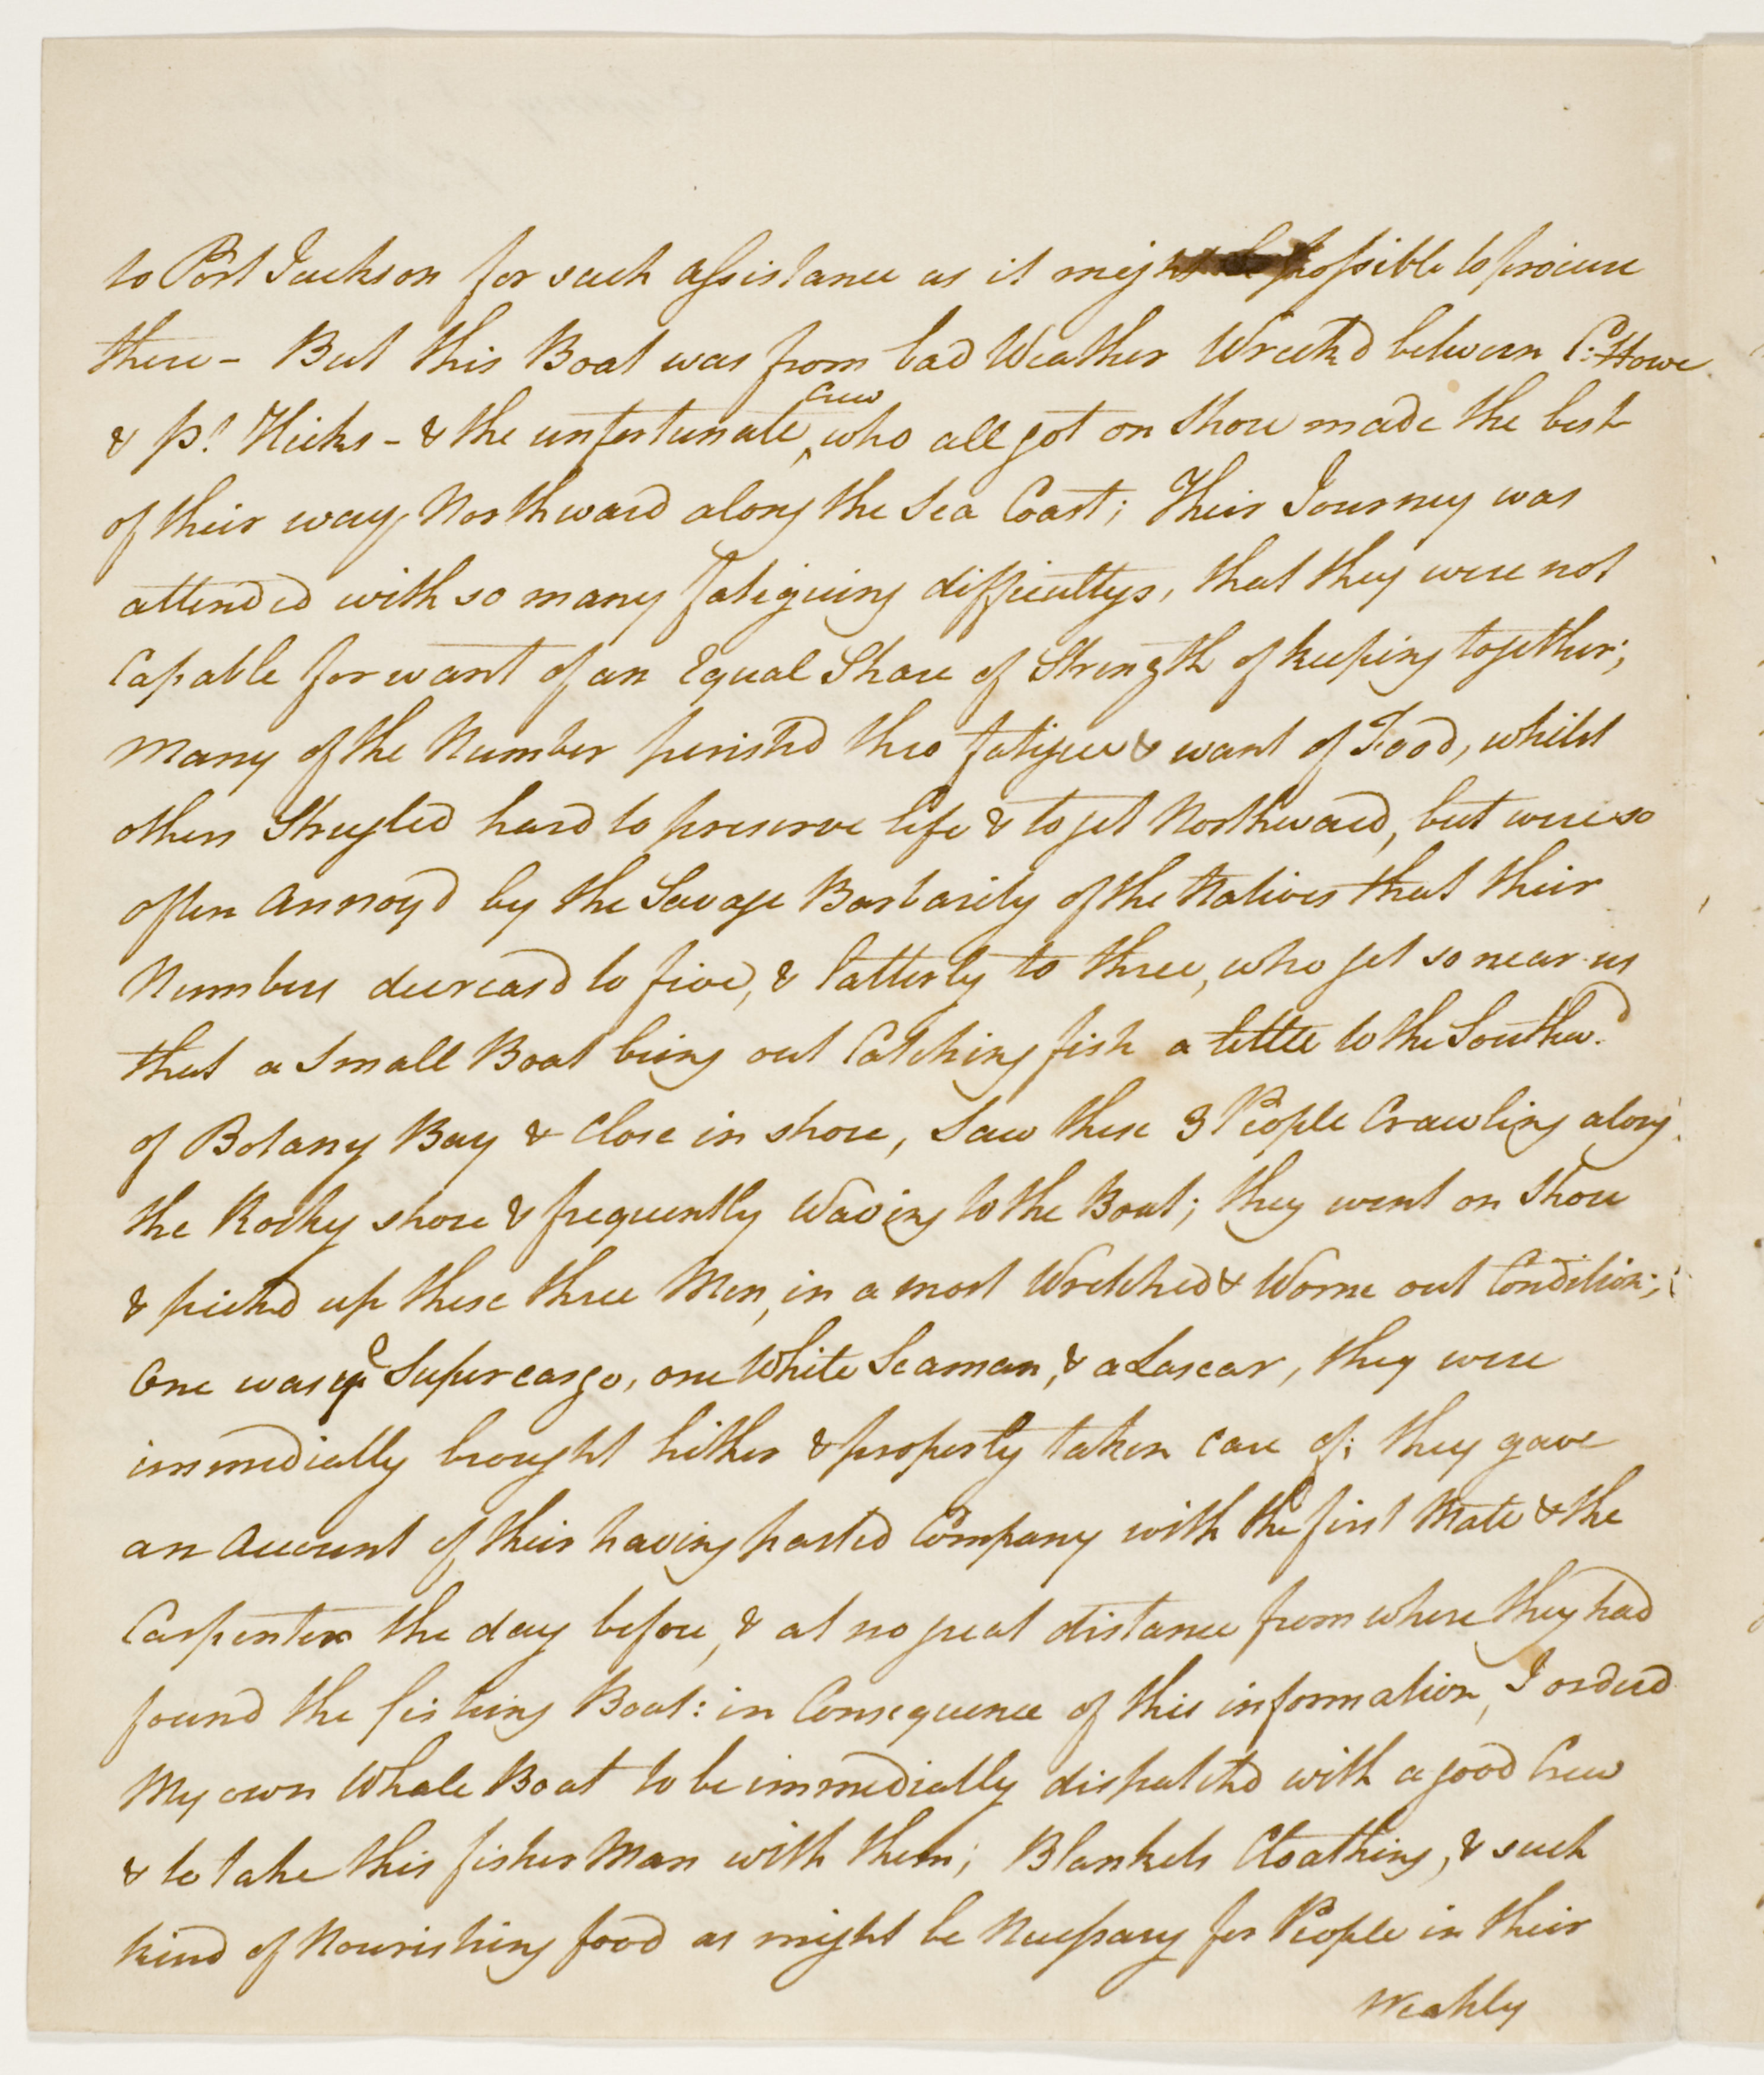 to Port Jackson for such assistance as it might be possible to procure
there - But this Boat was from bad Weather Wreck'd between C: Howe
& Pt. Hicks - & the unfortunate crew who all got on Shore made the best
of their way Northward along the Sea Coast; Their Journey was
attended with so many fatiguing difficultys, that they were not
Capable for want of an Equal Share of Strength of keeping together;
Many of the Number perish'd thro fatigue & want of Food, whilst
others Strugled hard to preserve life & to get Northward, but were so
often annoy'd by the Savage Barbarity of the Natives that their
Numbers decreas'd to five, & latterly to three, who got so near us
that a Small Boat being out Catching fish a little to the Southwd.
of Botany Bay & Close in shore, Saw these 3 People Crawling along
the Rocky shore & frequently Waving to the Boat; they went on Shore
& pick'd up these three Men, in a most Wretched & Worne out Condition;
One was ye Supercargo, one White Seaman, & a Lascar, they were
immedially brought hither & properly taken care of; they gave
an Account of their having parted Company with the first Mate & the
Carpenter the day before, & at no great distance from where they had
found the fishing Boat: in Consequence of this information, I orderd
My own Whale Boat to be immedially dispatch'd with a good Crew
& to take this fisher Man with them; Blankets Cloathing, & such
kind of Nourishing food as might be Necessary for People in their
Weakly